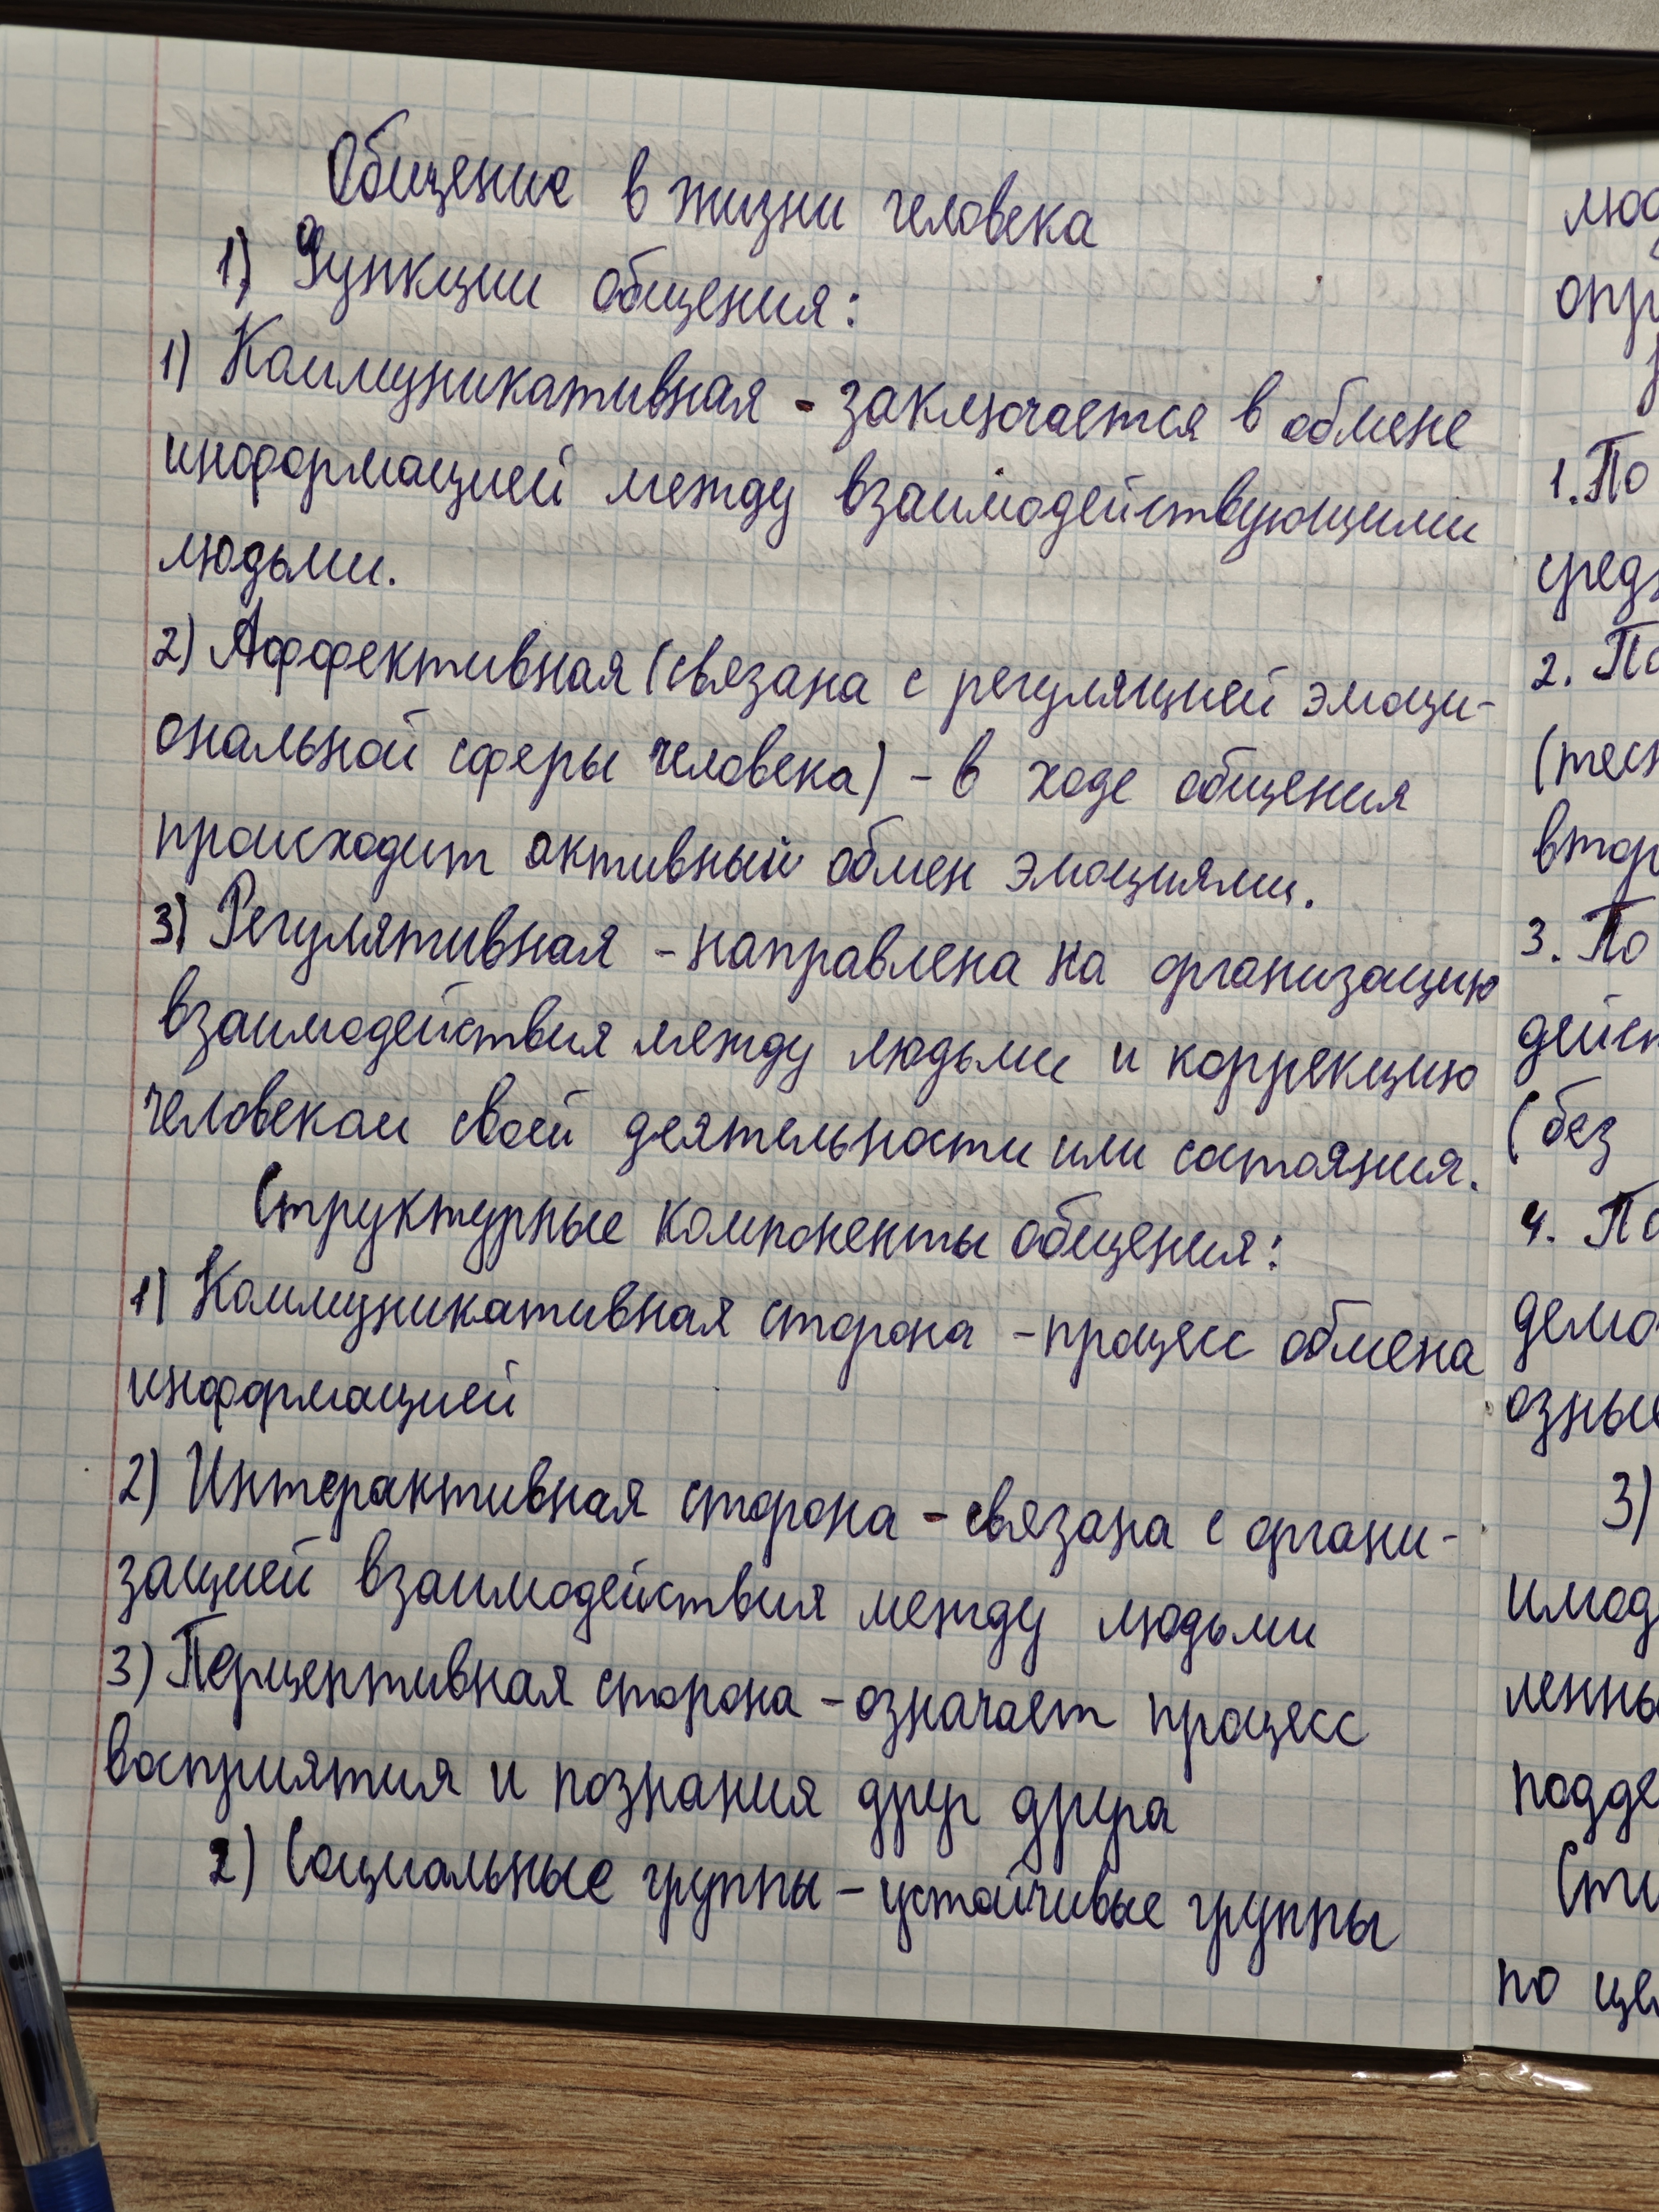 Общение в жизни человека
1) Функции общения:
1) Коммуникативная - заключается в обмене
информацией между взаимодействующими
людьми.
2) Аффективная (связана с регуляцией эмоци-
ональной сферы человека) - в ходе общения
происходит активный обмен эмоциями.
3) Регулятивная - направлена на организацию
взаимодействия между людьми и коррекцию
человеком своей деятельности или состояния.
Структурные компоненты общения:
1) Коммуникативная сторона - процесс обмена
информацией
2) Интерактивная сторона - связана с органи-
зацией взаимодействия между людьми
3) Перцептивная сторона - означает процесс
восприятия и познания друг друга
2) Социальные группы - устойчивые группы
1. По
2.
3. По
(без
4.
3)
по